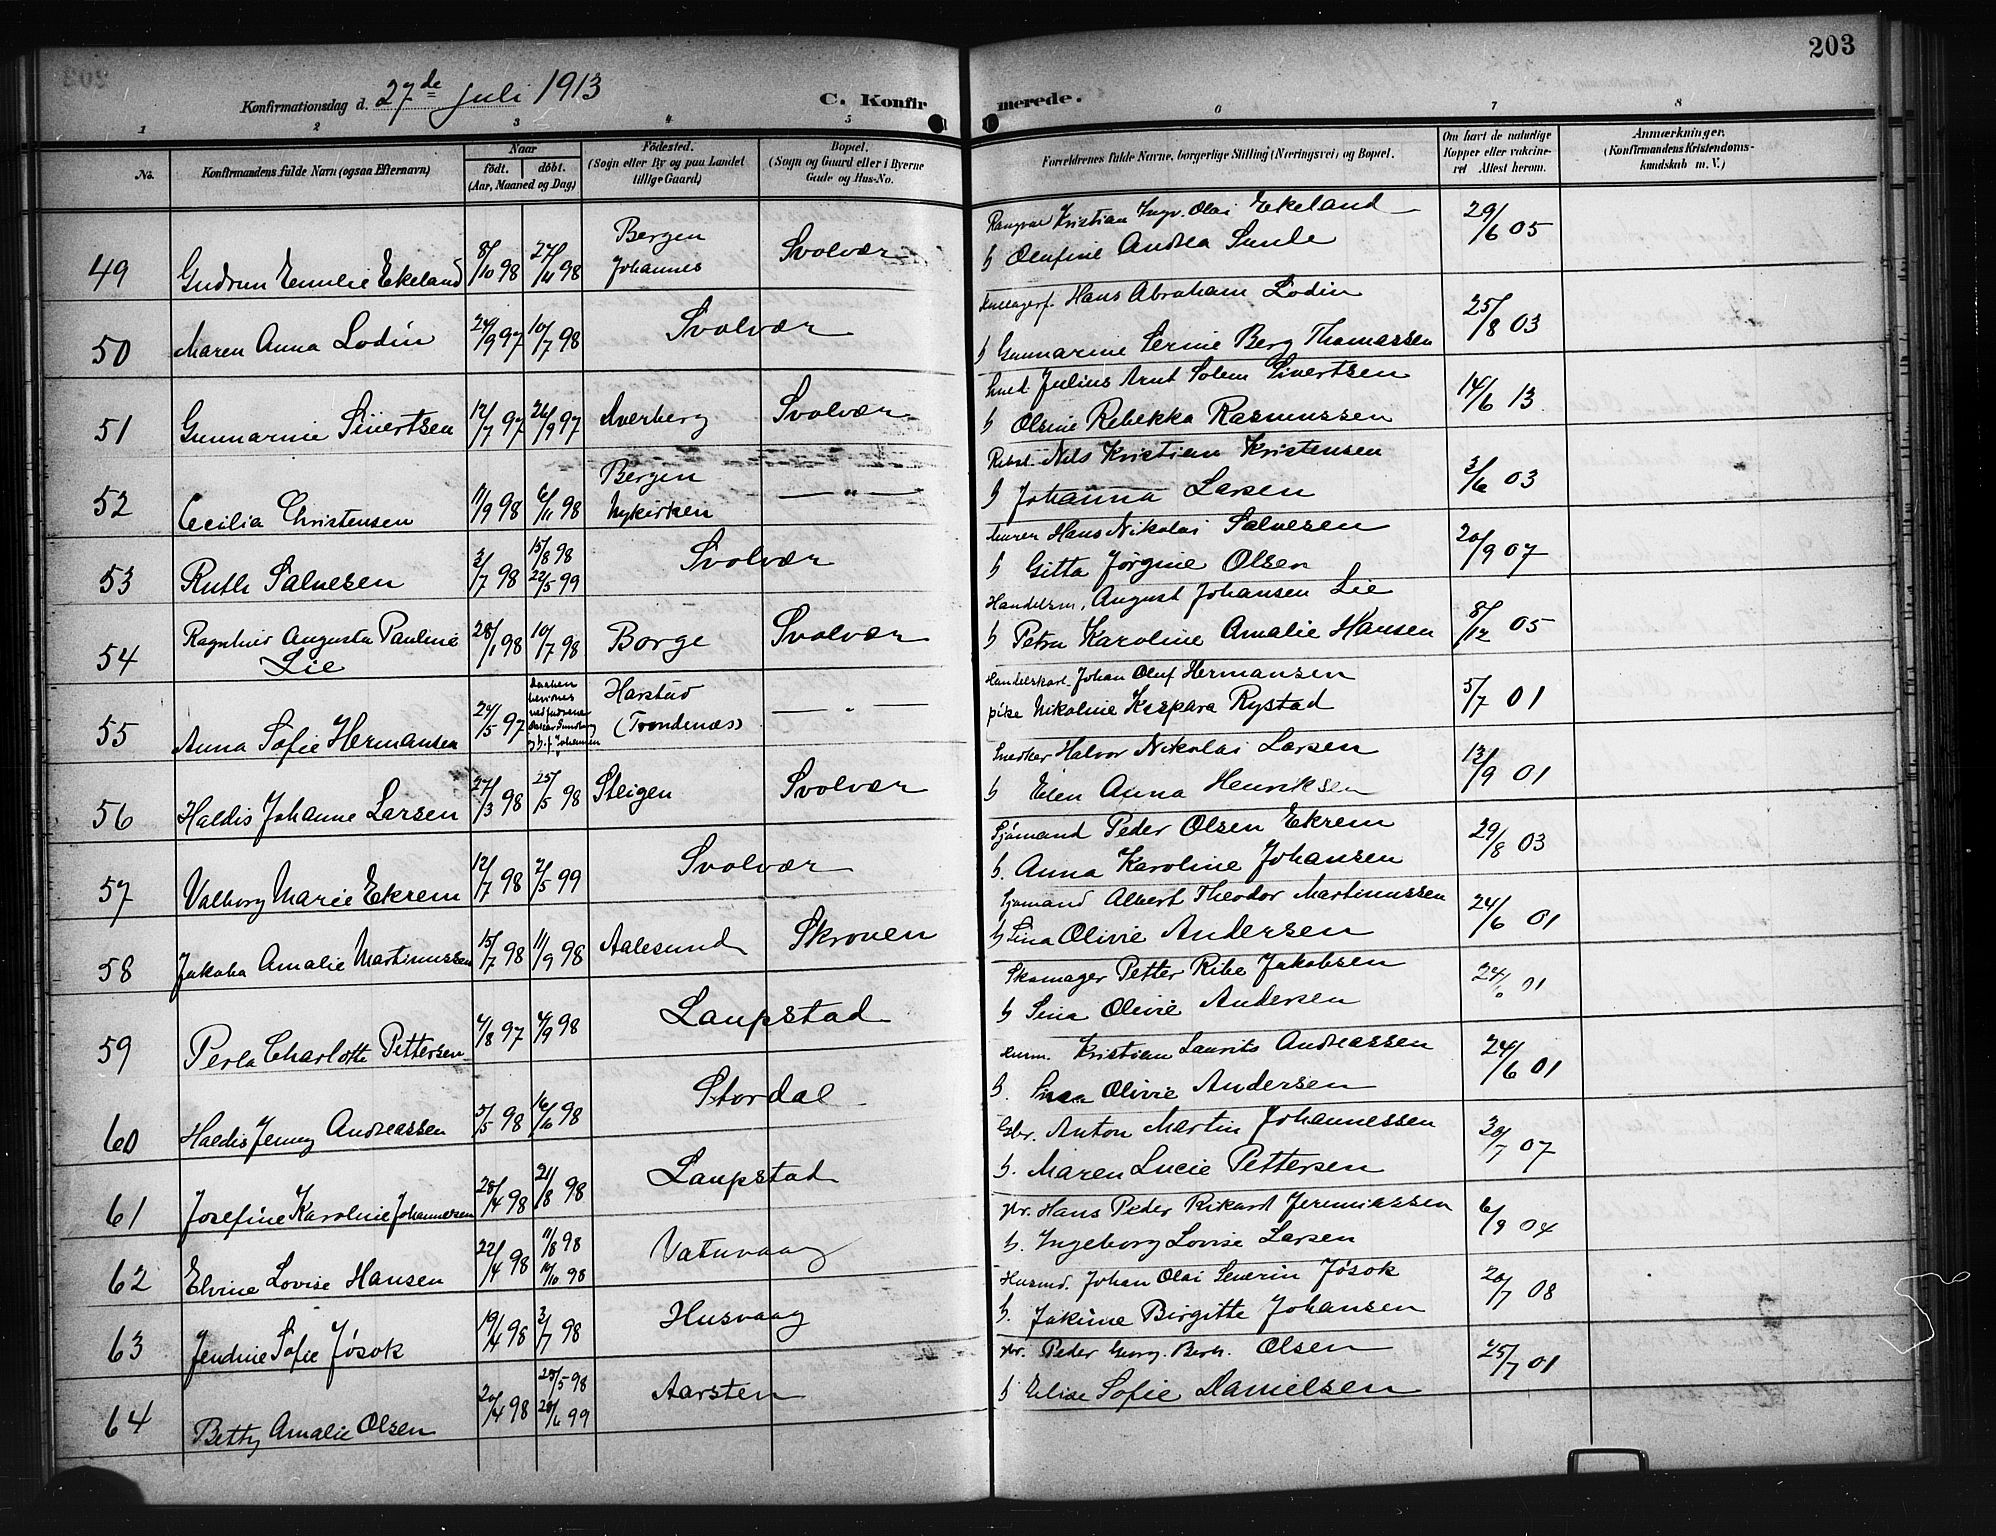 203
Konfirmationsdag d. 27de juli 1913
C. Konfirmerede.
1 2 3 4 5 6 7 8
No.
Konfirmandens fulde Navn (ogsaa Efternavn)
Naar
født. døbt.
(Aar, Maaned og Dag)
Fødested.
(Sogn eller By og paa Landet
tillige Gaard)
Bopæl.
(Sogn og Gaard eller i Byerne
Gade og Hus-No.
Forældrenes fulde Navne, borgerlige Stilling (Næringsvei) og Bopæl.
Om havt de naturlige
Kopper eller vaccine-
ret Attest herom.
Anmærkninger.
(Konfirmandens Kristendoms-
kundskab m. V.)
Kristian Ingv. Olai Ekeland
49 Gudrun Emelie Ekeland 8/10 98 27/11 98 Bergen Johannes Svolvær
h Olufine Andrea Sunde 29/6 05
Hans Abraham Lodin
50 Maren Anna Lodin 24/9 97 10/7 98 Svolvær
h Gunnarine Serine Berg Thomassen 25/8 03
Smed Julius Arnt Solem Sivertsen
51 Gunnarine Sivertsen 12/7 97 26/9 97 Averberg Svolvær
h Olsine Rebekka Rasmussen 14/6 13
Nils Kristian Kristensen
52 Cecilia Christensen 11/9 98 6/11 98 Bergen Nykirken — " —
h Johanna Larsen 3/6 03
Murer Hans Nikolai Salvesen
53 Ruth Salvesen 3/7 98 15/8 98 22/5 99 Svolvær
h Gitta Jørgine Olsen 20/9 07
Handelsm. August Johansen Lie
54 Ragnhild Augusta Pauline Lie 28/1 98 10/7 98 Borge Svolvær
h Petra Karoline Amalie Hansen 8/12 05
Handelskarl Johan Oluf Hermansen
55 Anna Sofie Hermansen 24/5 97 Harstad (Trondenæs) — " —
pike Nikoline Kaspara Rystad 5/7 01
Snedker Halvor Nikolai Larsen
56 Haldis Johanne Larsen 27/3 98 25/5 98 Steigen Svolvær
h Elen Anna Henriksen 12/9 01
Sjømand Peder Olsen Ekrem
57 Valborg Marie Ekrem 12/7 98 2/5 99 Svolvær
h. Anna Karoline Johansen 29/8 03
Sjømand Albert Theodor Martinussen
58 Jakoba Amalie Martinussen 15/7 98 11/9 98 Aalesund Skroven
h Sina Olivie Andersen 24/6 01
Skomager Petter Ribe Jakobsen
59 Perla Charlotte Pettersen 4/8 97 4/9 98 Laupstad
h Sina Olivie Andersen 24/ 01
Kristian Laurits Andreassen
60 Haldis Jenny Andreassen 5/5 98 16/10 98 Stordal
h. Sina Olivie Andersen 24/6 01
Gbr. Anton Martin Johannessen
61 Josefine Karoline Johannesen 28/4 98 21/8 98 Laupstad
h. Maren Lucie Pettersen 30/7 07
Hans Peder Rikard Jeremiassen
62 Elvine Lovise Hansen 22/4 98 11/8 98 16/10 98 Vatnvaag
h. Ingeborg Lovise Larsen 6/9 04
Husmd. Johan Olai Severin Jøsok
63 Jendine Sofie Jøsok 19/4 98 3/7 98 Husvaag
h. Jakine Birgitte Johansen 20/7 08
Peder Georg. Berh. Olsen
64 Betty Amalie Olsen 20/4 98 28/5 98 28/6 99 Aarsten
h Elise Sofie Danielsen 25/7 01